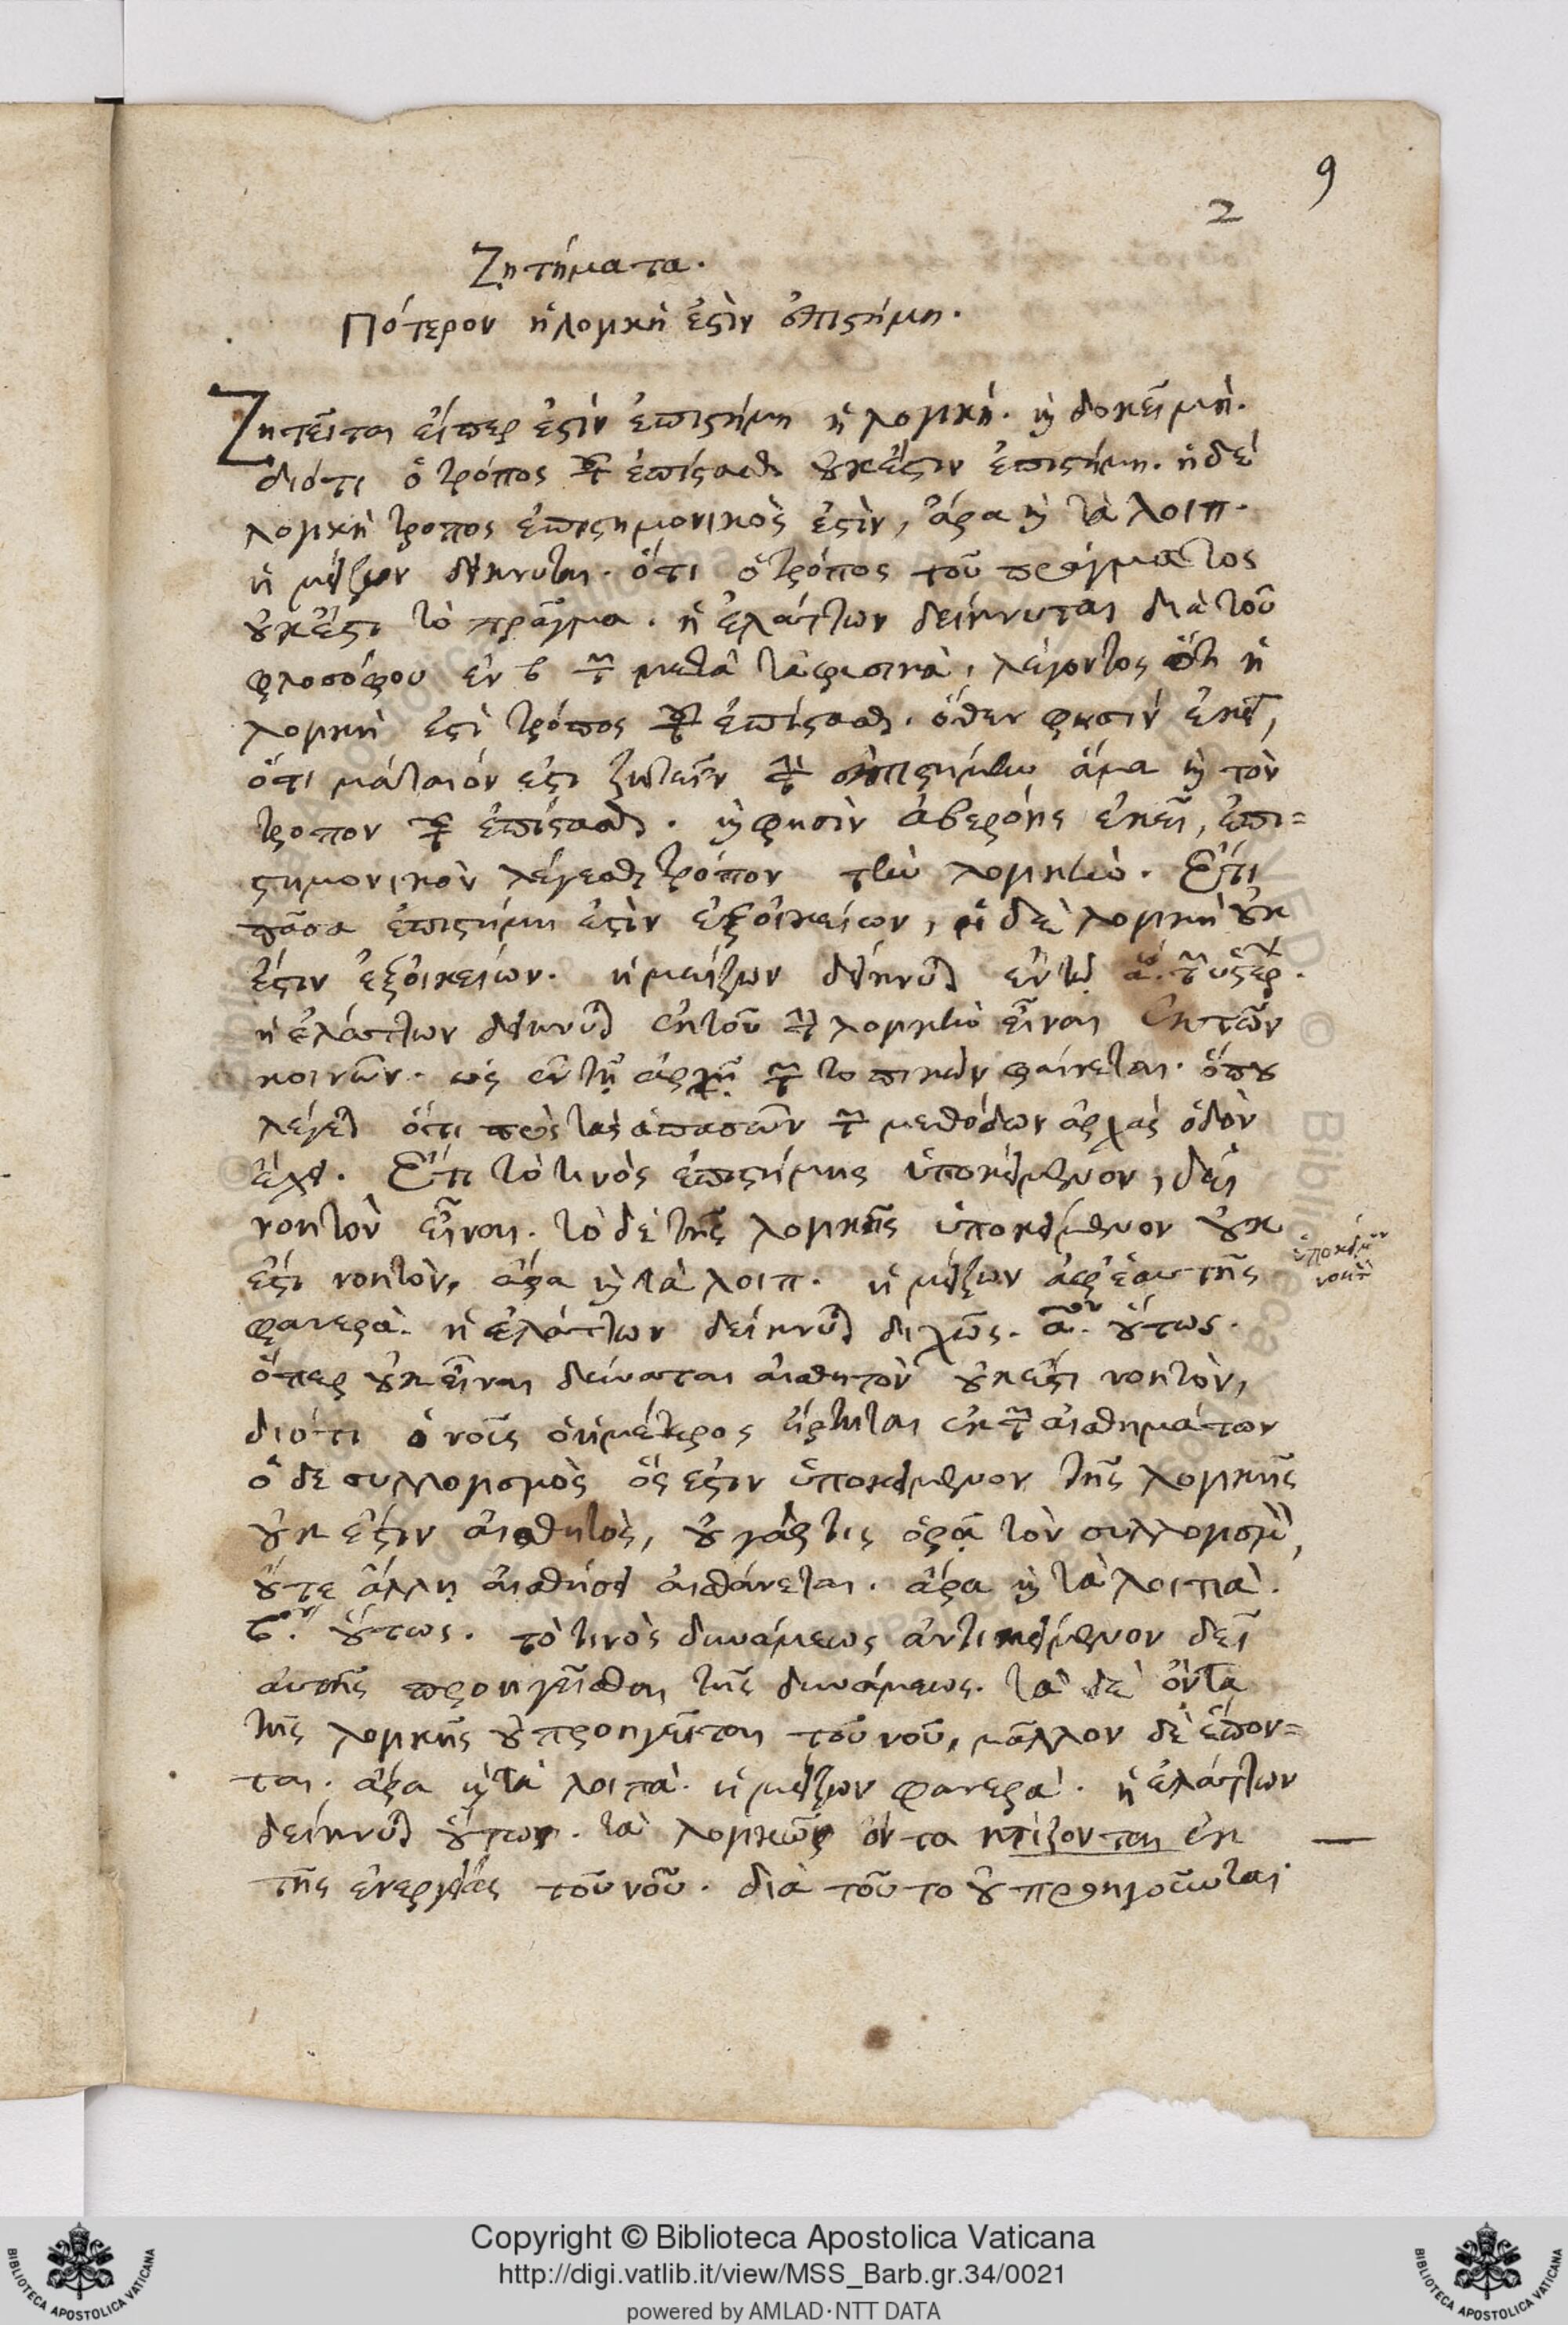 9
2
Ζητήματα.
Πότερον ἡ λογικὴ ἐστὶν ἐπιστήμη.
Ζητεῖται εἴπερ ἐστὶν ἐπιστήμη ἡ λογική. καὶ δοκεῖ μή.
διότι ὁ τρόπος τοῦ ἐπίστασθαι οὐκ ἔστιν ἐπιστήμη. ἡ δὲ
λογικὴ τρόπος ἐπιστημονικὸς ἐστὶν, ἄρα καὶ τὰ λοιπ.
ἡ μείζων δείκνυται. ὅτι ὁ τρόπος τοῦ πράγματος
οὐκ ἔστι τὸ πρᾶγμα. ἡ ἐλάττων δείκνυται διὰ τοῦ
φλοσόφου ἐν β τῶν μετὰ τὰ φυσικὰ, λέγοντος ὅτι ἡ
λογικὴ ἐστὶ τρόπος τοῦ ἐπίστασθαι. ὅθεν φησὶν ἐκεῖ,
ὅτι μάταιόν ἐστι ζητεῖν τὴν ἐπιστήμην ἅμα καὶ τὸν
τρόπον τοῦ ἐπίστασθαι. καὶ φησὶν ἀβερόης ἐκεῖ, ἐπι=
στημονικὸν λέγεσθαι τρόπον τὴν λογικήν. Ἔτι
πᾶσα ἐπιστήμη ἐστὶν ἐξ οἰκείων, ἡ δὲ λογικὴ οὐκ
ἔστιν ἐξ οἰκείων. ἡ μείζων δείκνυται ἐν τῷ α. τῶν ὑστέρ.
ἡ ἐλάττων δείκνυται ἐκ τοῦ τὴν λογικὴν εἶναι ἐκ τῶν
κοινῶν. ὡς ἐν τῇ ἀρχῇ τῶν τοπικῶν φαίνεται. ὅπου
λέγει ὅτι πρὸς τὰς ἁπασῶν τῶν μεθόδων ἀρχὰς ὁδὸν
ἔχει. Ἔτι τὸ τινὸς ἐπιστήμης ὑποκείμενον, δεῖ
νοητὸν εἶναι. τὸ δὲ τῆς λογικῆς ὑποκείμενον οὐκ
ἔστι νοητὸν, ἄρα καὶ τὰ λοιπ. ἡ μείζων ἀφ' ἑαυτῆς
ὑποκείμενον
νοητὸν
φανερὰ. ἡ ἐλάττων δείκνυται διχῶς. αον. οὕτως.
ὅπερ οὐκ εἶναι δύναται αἰσθητὸν οὐκ ἔστι νοητὸν,
διότι ὁ νοῦς ὁ ἡμέτερος ἤρτηται ἐκ τῶν αἰσθημάτων
ὁ δὲ συλλογισμὸς ὅς ἐστιν ὑποκείμενον τῆς λογικῆς
οὐκ ἔστιν αἰσθητὸς, οὐ γάρ τις ὁρᾷ τὸν συλλογισμὸν,
οὔτε ἄλλῃ αἰσθήσει αἰσθάνεται. ἄρα καὶ τὰ λοιπὰ.
βον. οὕτως. τὸ τινὸς δυνάμεως ἀντικείμενον δεῖ
αὐτῆς προηγεῖσθαι τῆς δυνάμεως. τὰ δὲ ὄντα
τῆς λογικῆς οὐ προηγεῖται τοῦ νοῦ, μᾶλλον δὲ ἕπον=
ται. ἄρα καὶ τὰ λοιπὰ. ἡ μείζων φανερὰ. ἡ ἐλάττων
δείκνυται οὕτως. τὰ λογικῶς ὄντα κτίζονται ἐκ
τῆς ἐνεργείας τοῦ νοῦ. διὰ τοῦτο οὐ προηγοῦνται
Copyright © Biblioteca Apostolica Vaticana
http://digi.vatlib.it/view/MSS_Barb.gr.34/0021
powered by AMLAD·NTT DATA
BIBLIOTECA APOSTOLICA VATICANA
BIBLIOTECA APOSTOLICA VATICANA